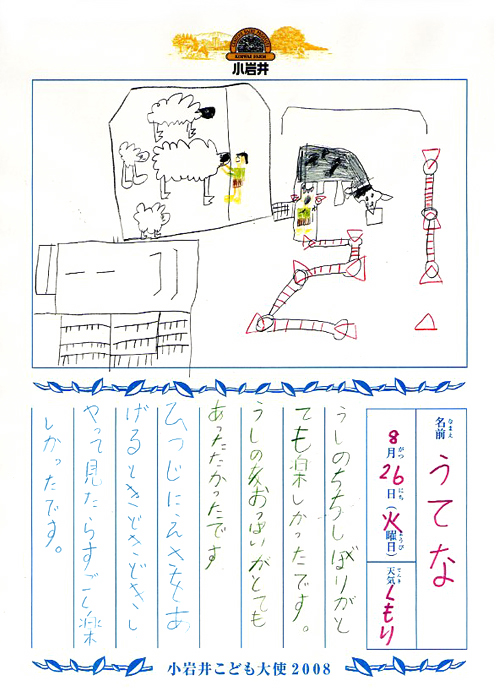 KOIWAI FARM
小岩井
名前
なまえ
うてな
8月26日(火曜日)
がつ にち ようび
天気
てんき
くもり
うしのちちしぼりがと
ても楽しかったです。
うしのおっぱいがとても
あったかかったです
ひつじにえさをあ
げるときどきどきし
やって見たらすごく楽
しかったです。
小岩井こども大使2008